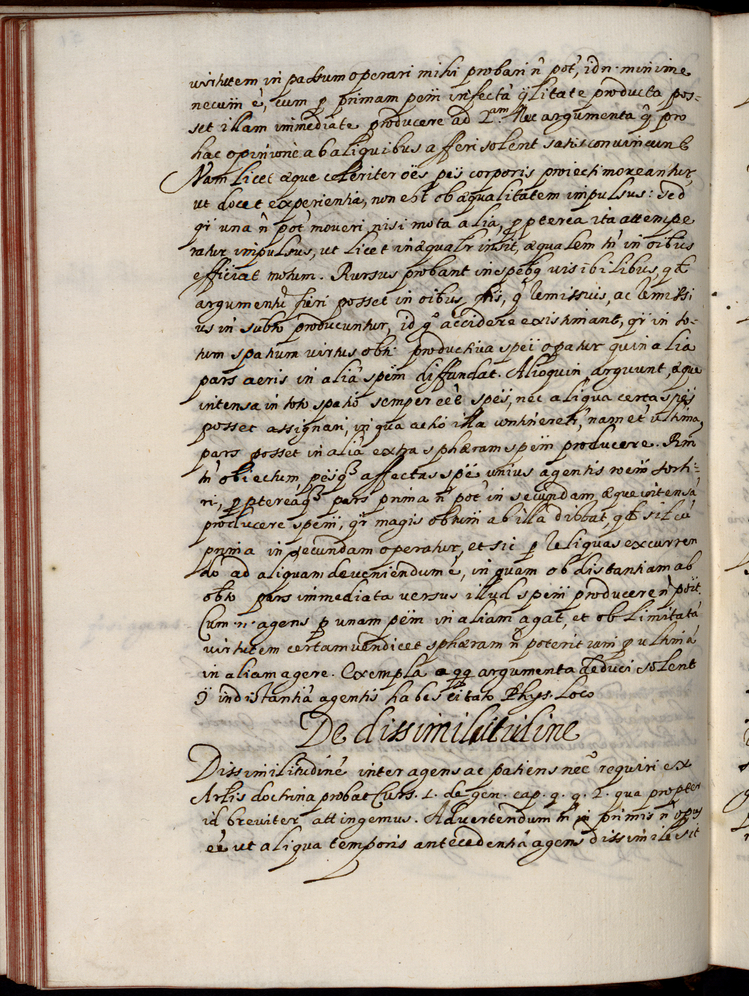 virtutem in passum operari mihi probari ñ pot, id n. minime
necum ẽ, cum p primam pem infectã qlitate producta pos-
set illam immediate producere ad 2.am Nec argumenta q̃ pro
hac opinione ab aliquibus afferi solent satis convincunt
Nam licet æque celeriter oẽs pẽs corporis proiecti moveantur
ut docet experientia, non est ob æqualitatem impulsus: sed
qr una ñ pot moveri, nisi mota alia, ppterea ita attempe
ratur impulsus, ut licet inæqualr insit, æqualem tñ in oibus
efficiat motum. Rursus probant in spẽbq visibilibus, qd
argumentũ fieri posset in oibus, his, q̃ remissius, ac remissi
us in subto producuntur, id q accidere existimant, qr in to-
tum spatium virtus obti productiva speĩ opatur quin alia
pars aeris in aliã spẽm diffundat. Alioquin arguunt, æque
intensa in toto spatio semper eẽ speĩ, nec aliqua certa spẽs
posset assignari, in qua actio illa contineretr, nam et ultima
pars posset in aliã extra sphæram spẽm producere. Rm
tñ obiectum, pẽsq affectas spẽ unius agentis roẽm sorti-
ri, pptereaq pars prima ñ pot in secundam æque intensã
producere spẽm, qr magis obtum ab illa distat, qd sit cũ
prima in secundam operatur, et sic p reliquas excurren
do ad aliquam deveniendum ẽ, in quam ob distantiam ab
obto pars immediata versus illud spẽm producere ñ poĩt.
Cum n. agens p unam pẽm in aliam agat, et ob limitatã
virtutem certam vendicet sphæram ñ poterit iam p ultimã
in aliam agere. Exempla a qq argumenta deduci solent
ꝯ indistantiã agentis habes citato Phys. loco
De dissimilitudine
Dissimilitudinẽ inter agens ac patiens necº requiri ex
Artis doctrina probat Curs. 1. de gen. cap. q. q. 2. qua propter
id breviter attingemus. Advertendum tñ in primis ñ opus
eẽ ut aliqua temporis antecedentiã agens dissimile sit